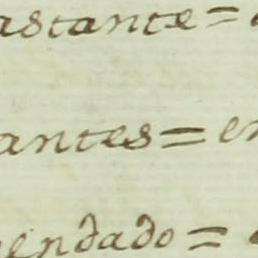 astante =
antes = en
endado =